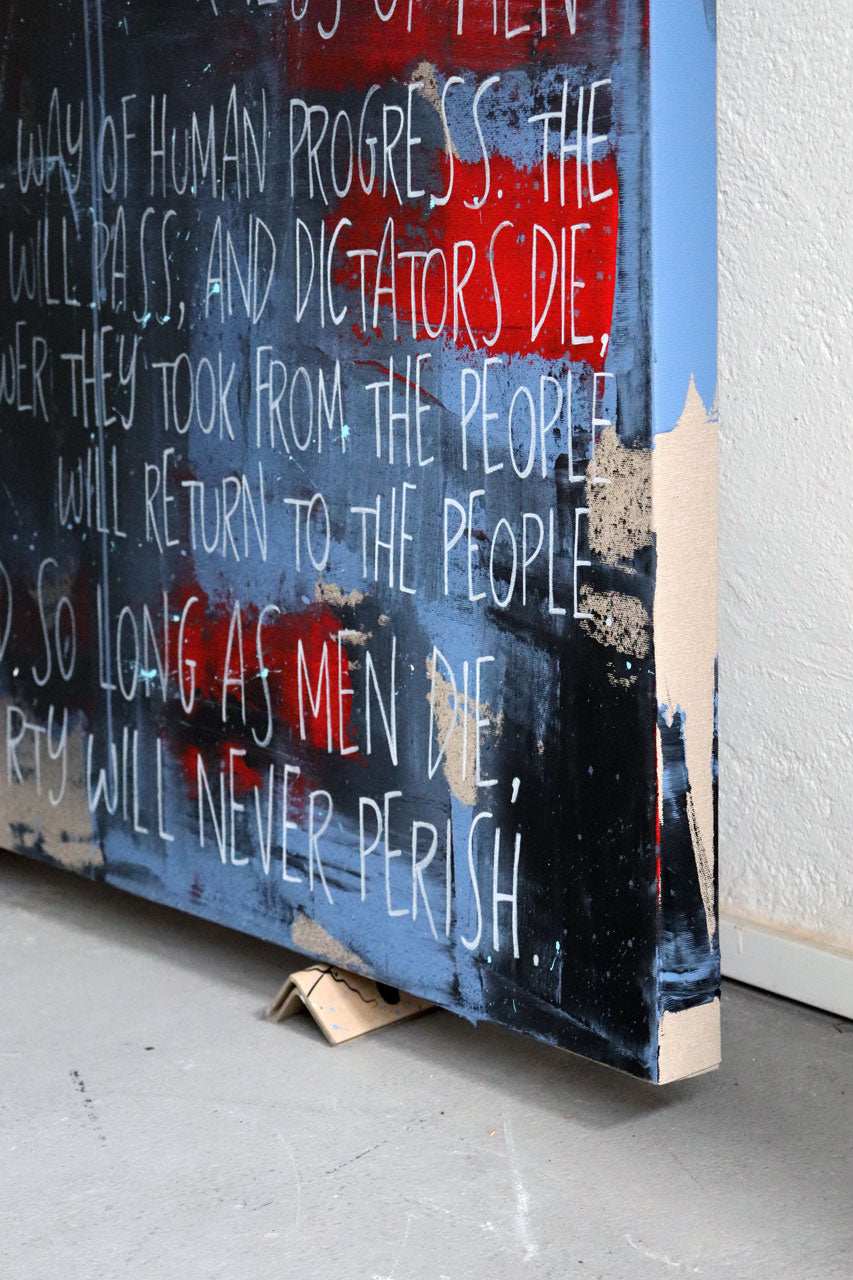 OF MEN
WAY OF HUMAN PROGRESS. THE
WILL PASS, AND DICTATORS DIE,
WER THEY TOOK FROM THE PEOPLE
WILL RETURN TO THE PEOPLE.
. SO LONG AS MEN DIE,
RTY WILL NEVER PERISH..